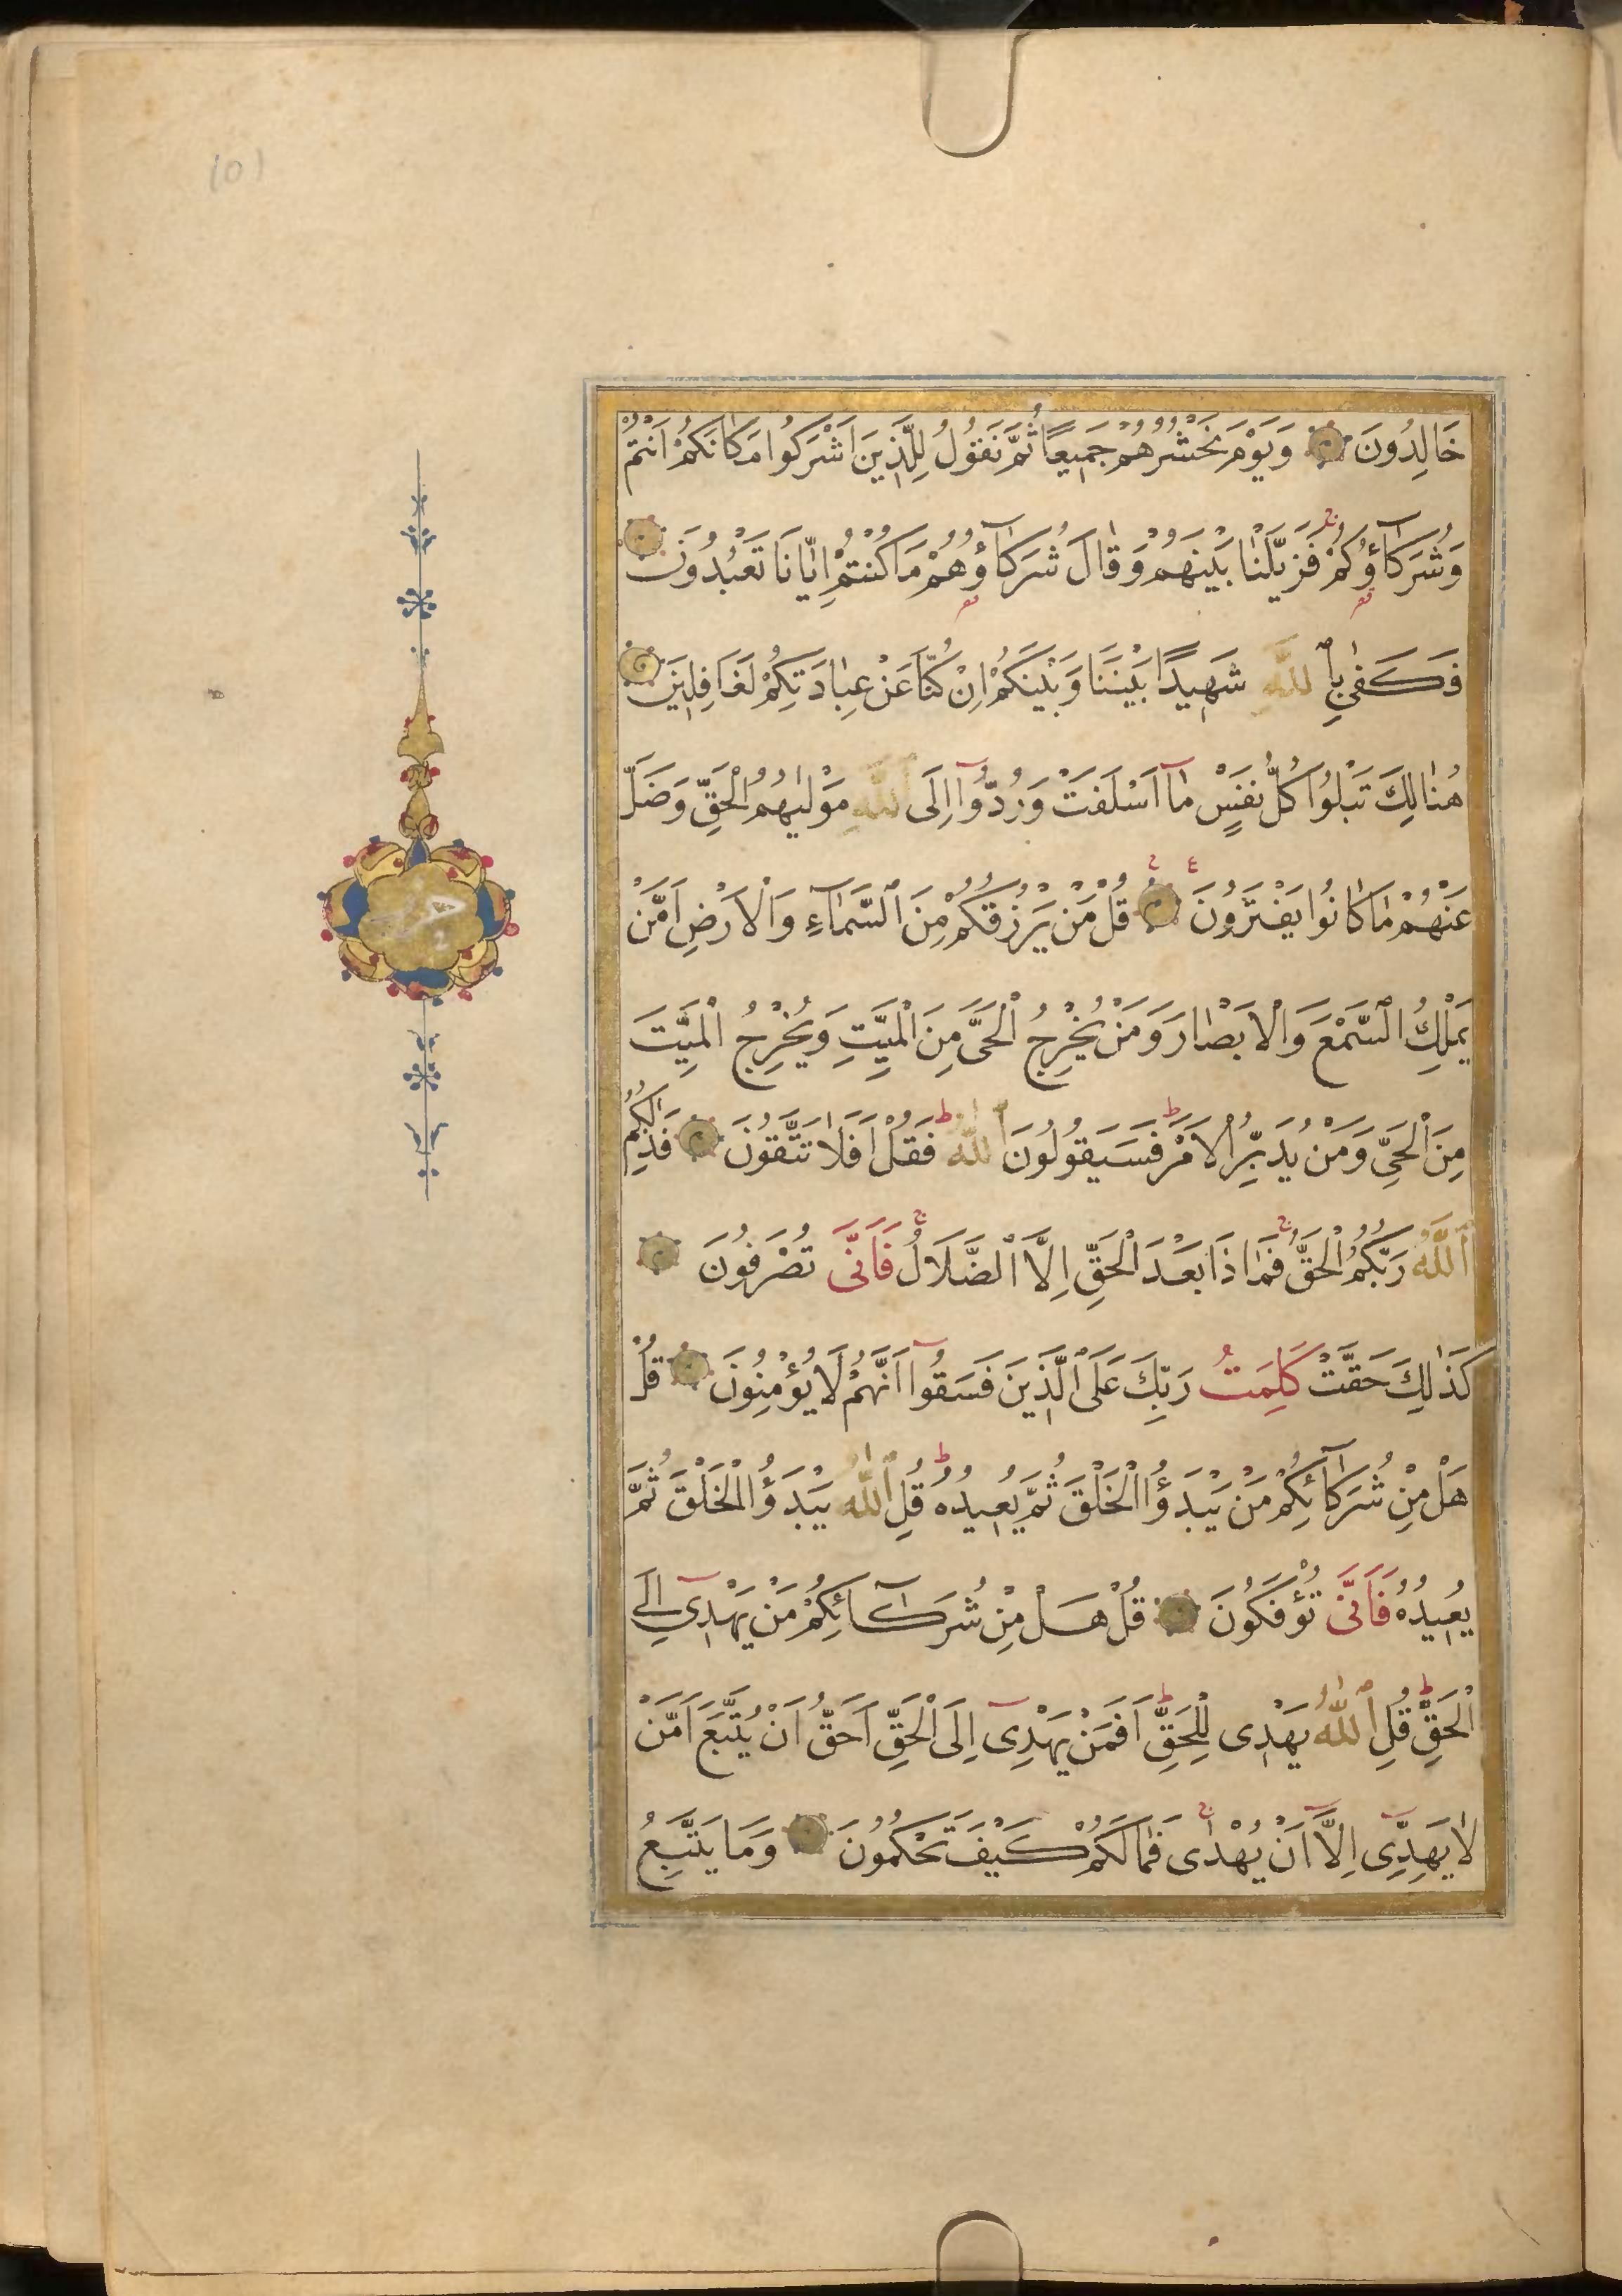 (0)
خَالِدُونَ وَيَوْمَ نَحْشُرُهُمْ جَمِيعًا ثُمَّ نَقُولُ لِلَّذِينَ اَشْرَكُوا مَكَانَكُمْ اَنْتُمْ
وَشُرَكَآؤُكُمْ فَزَيَّلْنَا بَيْنَهُمْ وَقَالَ شُرَكَآؤُهُمْ مَا كُنْتُمْ اِيَّانَا تَعْبُدُونَ
فَكَفٰى بِاللّٰهِ شَهِيدًا بَيْنَنَا وَبَيْنَكُمْ اِنْ كُنَّا عَنْ عِبَادَتِكُمْ لَغَافِلِينَ
هُنَالِكَ تَبْلُوا كُلُّ نَفْسٍ مَآ اَسْلَفَتْ وَرُدُّوٓا اِلَى اللّٰهِ مَوْلٰيهُمُ الْحَقِّ وَضَلَّ
عَنْهُمْ مَا كَانُوا يَفْتَرُونَ قُلْ مَنْ يَرْزُقُكُمْ مِنَ السَّمَآءِ وَالْاَرْضِ اَمَّنْ
يَمْلِكُ السَّمْعَ وَالْاَبْصَارَ وَمَنْ يُخْرِجُ الْحَىَّ مِنَ الْمَيِّتِ وَيُخْرِجُ الْمَيِّتَ
مِنَ الْحَىِّ وَمَنْ يُدَبِّرُ الْاَمْرَ فَسَيَقُولُونَ اللّٰهُ فَقُلْ اَفَلَا تَتَّقُونَ فَذٰلِكُمُ
اللّٰهُ رَبُّكُمُ الْحَقُّ فَمَاذَا بَعْدَ الْحَقِّ اِلَّا الضَّلَالُ فَاَنّٰى تُصْرَفُونَ
كَذٰلِكَ حَقَّتْ كَلِمَتُ رَبِّكَ عَلَى الَّذِينَ فَسَقُوٓا اَنَّهُمْ لَا يُؤْمِنُونَ قُلْ
هَلْ مِنْ شُرَكَآئِكُمْ مَنْ يَبْدَؤُا الْخَلْقَ ثُمَّ يُعِيدُهُ قُلِ اللّٰهُ يَبْدَؤُا الْخَلْقَ ثُمَّ
يُعِيدُهُ فَاَنّٰى تُؤْفَكُونَ قُلْ هَلْ مِنْ شُرَكَآئِكُمْ مَنْ يَهْدِىٓ اِلَى
الْحَقِّ قُلِ اللّٰهُ يَهْدِى لِلْحَقِّ اَفَمَنْ يَهْدِىٓ اِلَى الْحَقِّ اَحَقُّ اَنْ يُتَّبَعَ اَمَّنْ
لَا يَهِدِّىٓ اِلَّآ اَنْ يُهْدٰى فَمَا لَكُمْ كَيْفَ تَحْكُمُونَ وَمَا يَتَّبِعُ